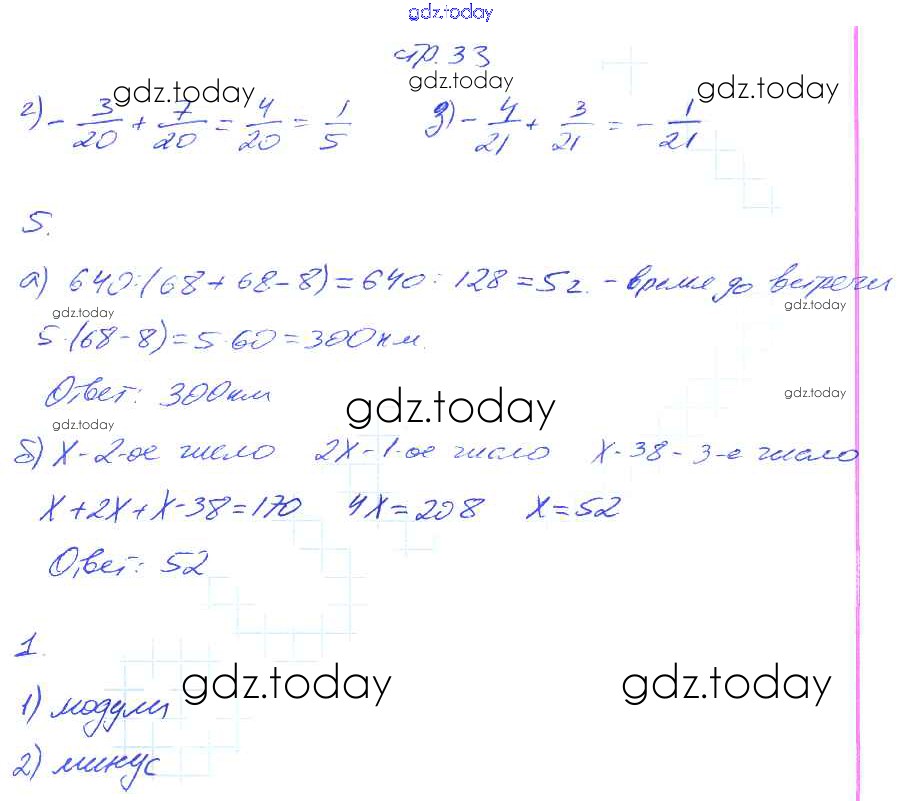 gdz.today
стр. 33
gdz.today gdz.today gdz.today
г) - 3/20 + 7/20 = 4/20 = 1/5 д) - 4/21 + 3/21 = - 1/21
5.
а) 640:(68+68-8)=640:128=5г. - время до встречи
gdz.today gdz.today
5·(68-8)=5·60=300км.
Ответ: 300км
gdz.today gdz.today
gdz.today
б) х-2-ое число 2х-1-ое число х-38-3-е число
х+2х+х-38=170 4х=208 х=52
Ответ: 52
1.
gdz.today gdz.today
1) модули
2) минус